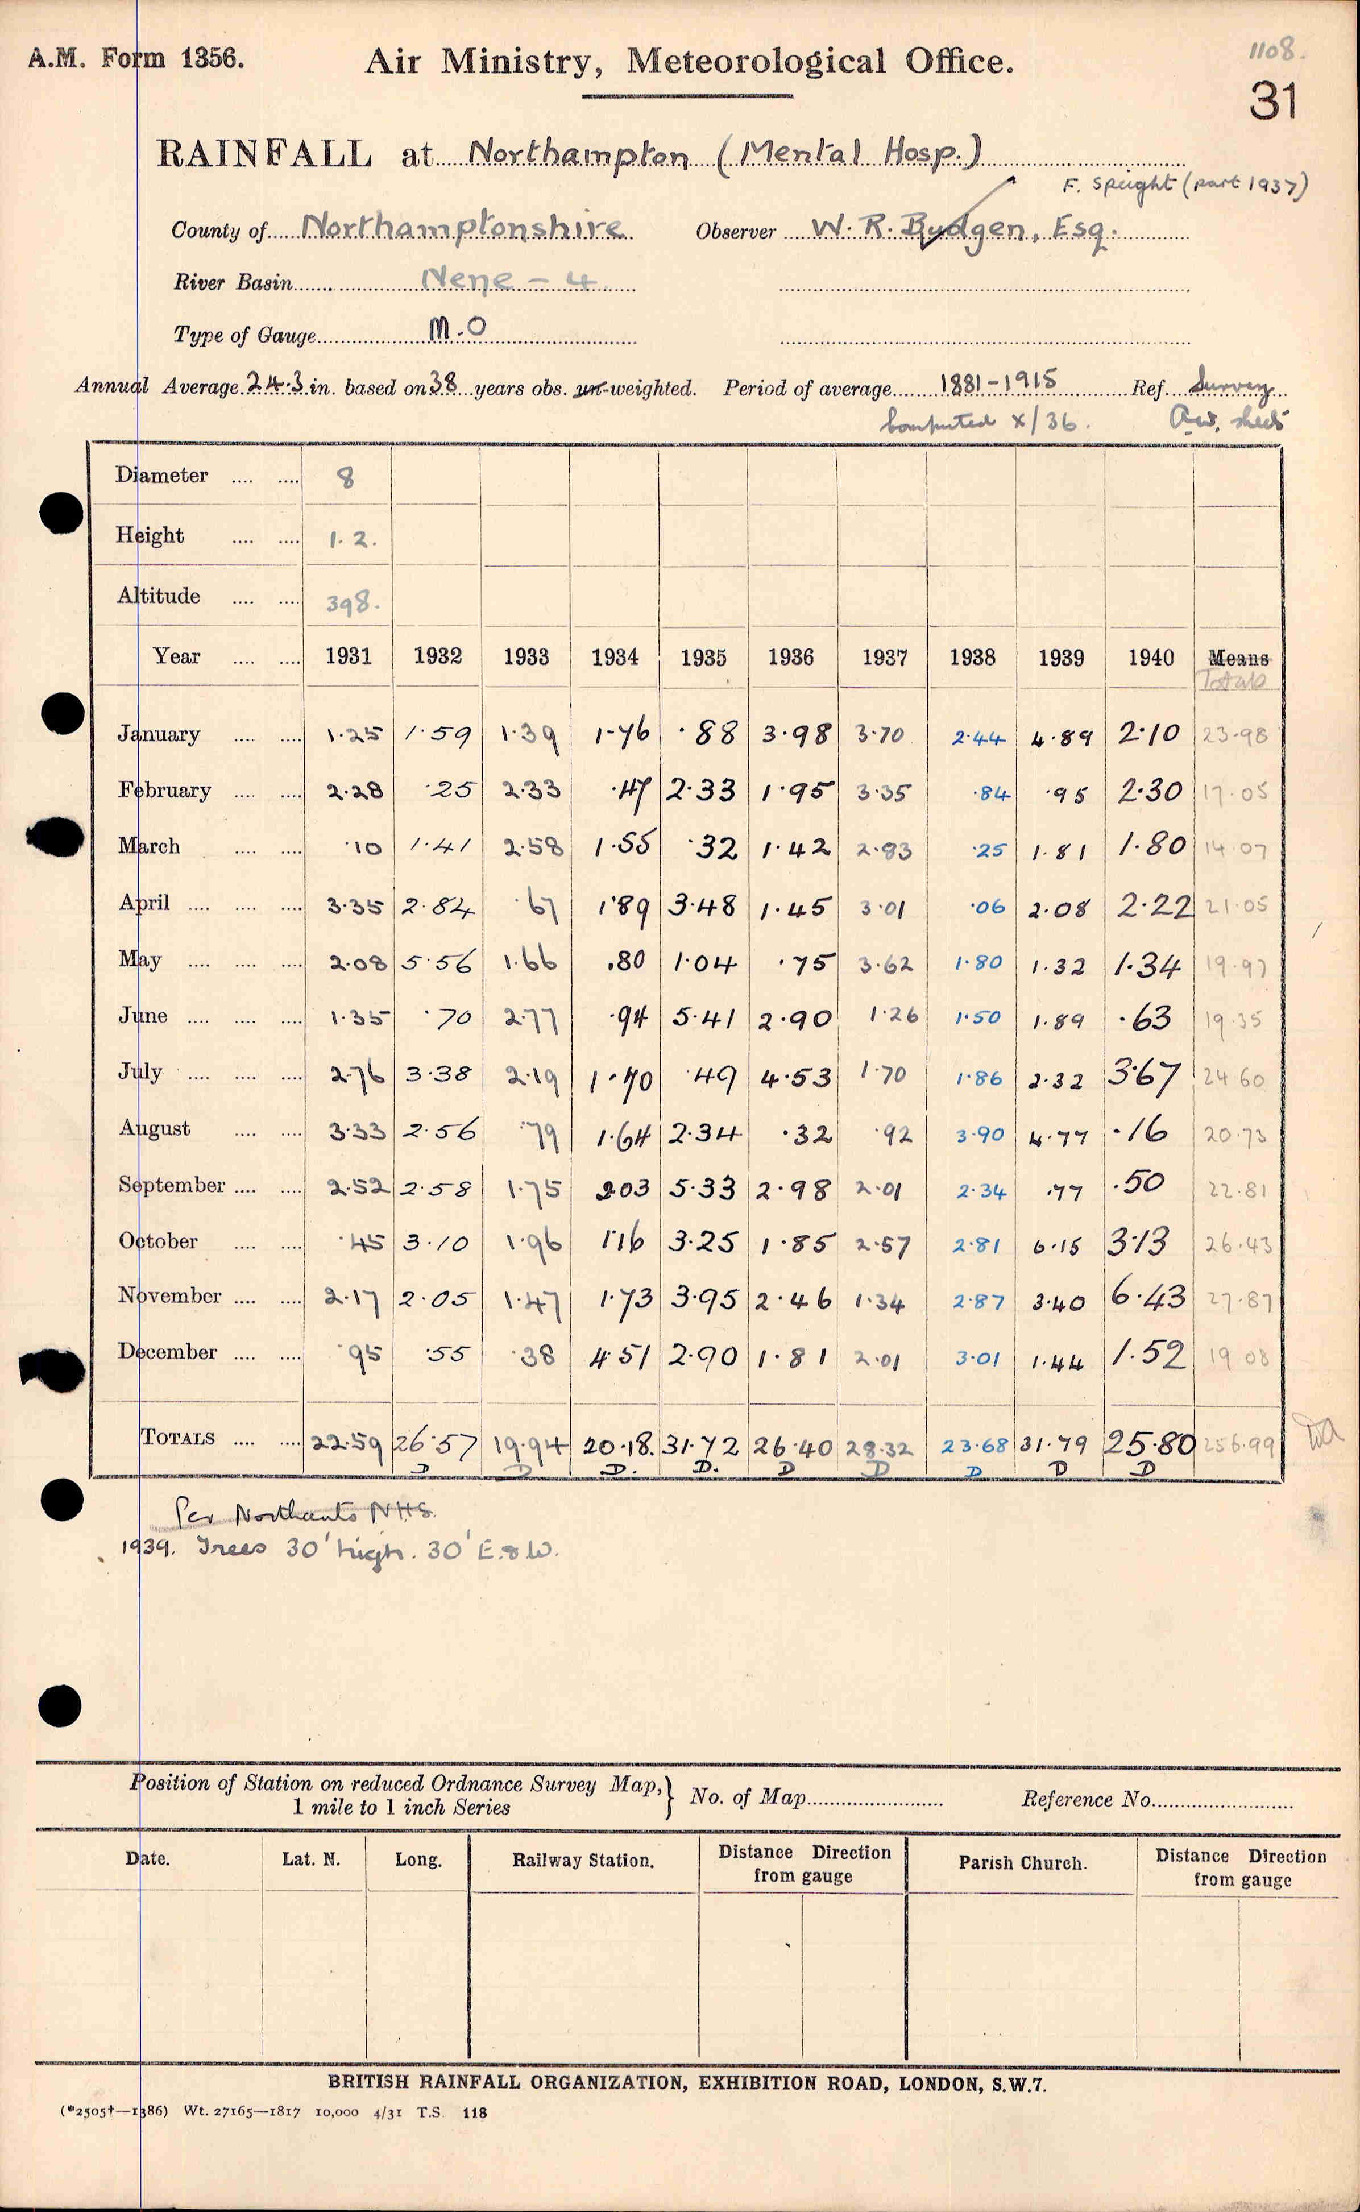 A.M. Form 1356.
Air Ministry, Meteorological Office.
1108.
31
RAINFALL at Northampton (Mental Hosp.)
F. Speight (part 1937)
County of Northamptonshire Observer W. R. Budgen, Esq.
River Basin Nene - 4
Type of Gauge M.O
Annual Average 24.3 in. based on 38 years obs. un-weighted. Period of average 1881-1915 Ref. Survey
Computed X/36. Av. sheet
Diameter 8
Height 1.2.
Altitude 398.
Year 1931 1932 1933 1934 1935 1936 1937 1938 1939 1940 Means
Totals
January 1.25 1.59 1.39 1.76 .88 3.98 3.70 2.44 4.89 2.10 23.98
February 2.28 .25 2.33 .47 2.33 1.95 3.35 .84 .95 2.30 17.05
March .10 1.41 2.58 1.55 .32 1.42 2.83 .25 1.81 1.80 14.07
April 3.35 2.84 .67 1.89 3.48 1.45 3.01 .06 2.08 2.22 21.05
May 2.08 5.56 1.66 .80 1.04 .75 3.62 1.80 1.32 1.34 19.97
June 1.35 .70 2.77 .94 5.41 2.90 1.26 1.50 1.89 .63 19.35
July 2.76 3.38 2.19 1.70 .49 4.53 1.70 1.86 2.32 3.67 24.60
August 3.33 2.56 .79 1.64 2.34 .32 .92 3.90 4.77 .16 20.73
September 2.52 2.58 1.75 203 5.33 2.98 2.01 2.34 .77 .50 22.81
October .45 3.10 1.96 1.16 3.25 1.85 2.57 2.81 6.15 3.13 26.43
November 2.17 2.05 1.47 1.73 3.95 2.46 1.34 2.87 3.40 6.43 27.87
December .95 .55 .38 4.51 2.90 1.81 2.01 3.01 1.44 1.52 19.08
TOTALS 22.59 26.57 19.94 20.18. 31.72 26.40 28.32 23.68 31.79 25.80 256.99
D D D. D. D D D D D
Per Northants N.H.S.
1939. Trees 30' high. 30' E. & W.
Position of Station on reduced Ordnance Survey Map, 1 mile to 1 inch Series } No. of Map Reference No.
Date. Lat. N. Long. Railway Station. Distance Direction from gauge Parish Church. Distance Direction from gauge
BRITISH RAINFALL ORGANIZATION, EXHIBITION ROAD, LONDON, S.W.7.
(*2505†—1386) Wt. 27165—1817 10,000 4/31 T.S. 118